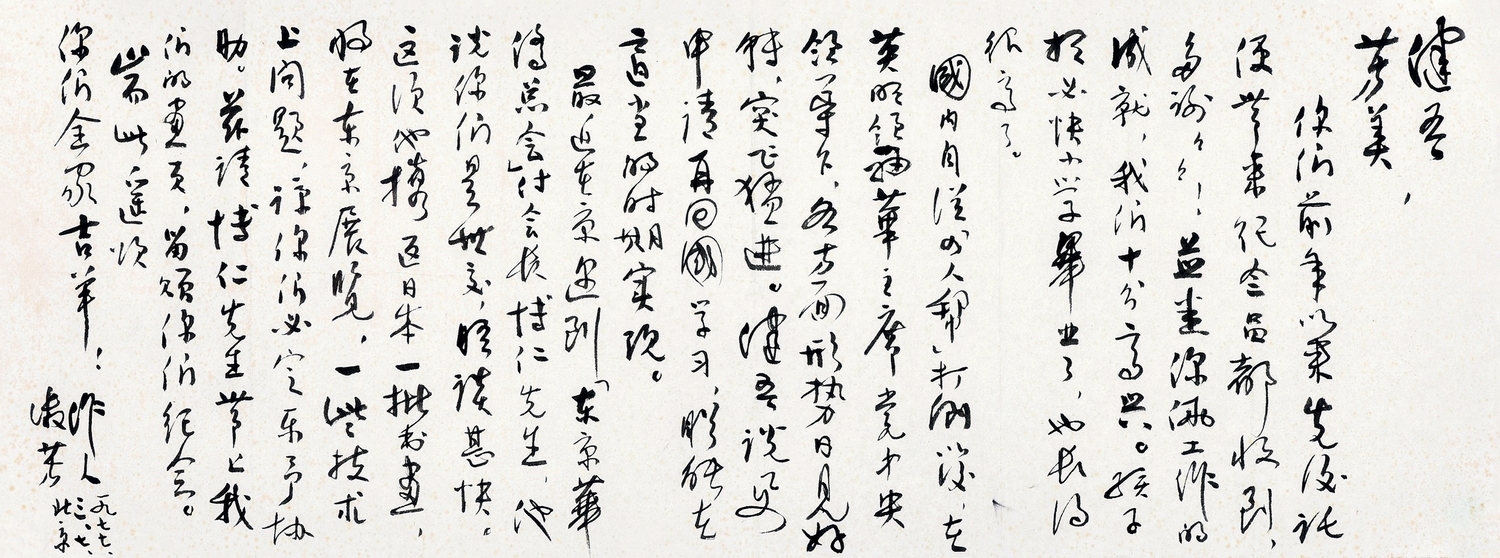 健吾
芳美，
你们前年以来先后託
便带来纪念品都收到，
多谢多谢！并悉你俩工作的
成就，我们十分高兴。孩子
想必快小学毕业了，也长得
很高了。
國内自从四人帮打倒以后，在
英明领袖華主席党中央
领导下，各方面形势日见好
转，突飞猛进。健吾说要
申请再回國学习，盼能在
适当的时期实现。
最近在京遇到「东京華
侨总会」付会长博仁先生，他
说你们是世交，晤谈甚快。
这次他携返日本一批书画，
将在东京展览，一些技术
上问题，谅你们必定乐予协
助。兹请博仁先生带上我
们的画页，留赠你们纪念。
耑此 遥颂
你们全家吉羊！
作人
淑芳
一九七七、
三、七、
北京